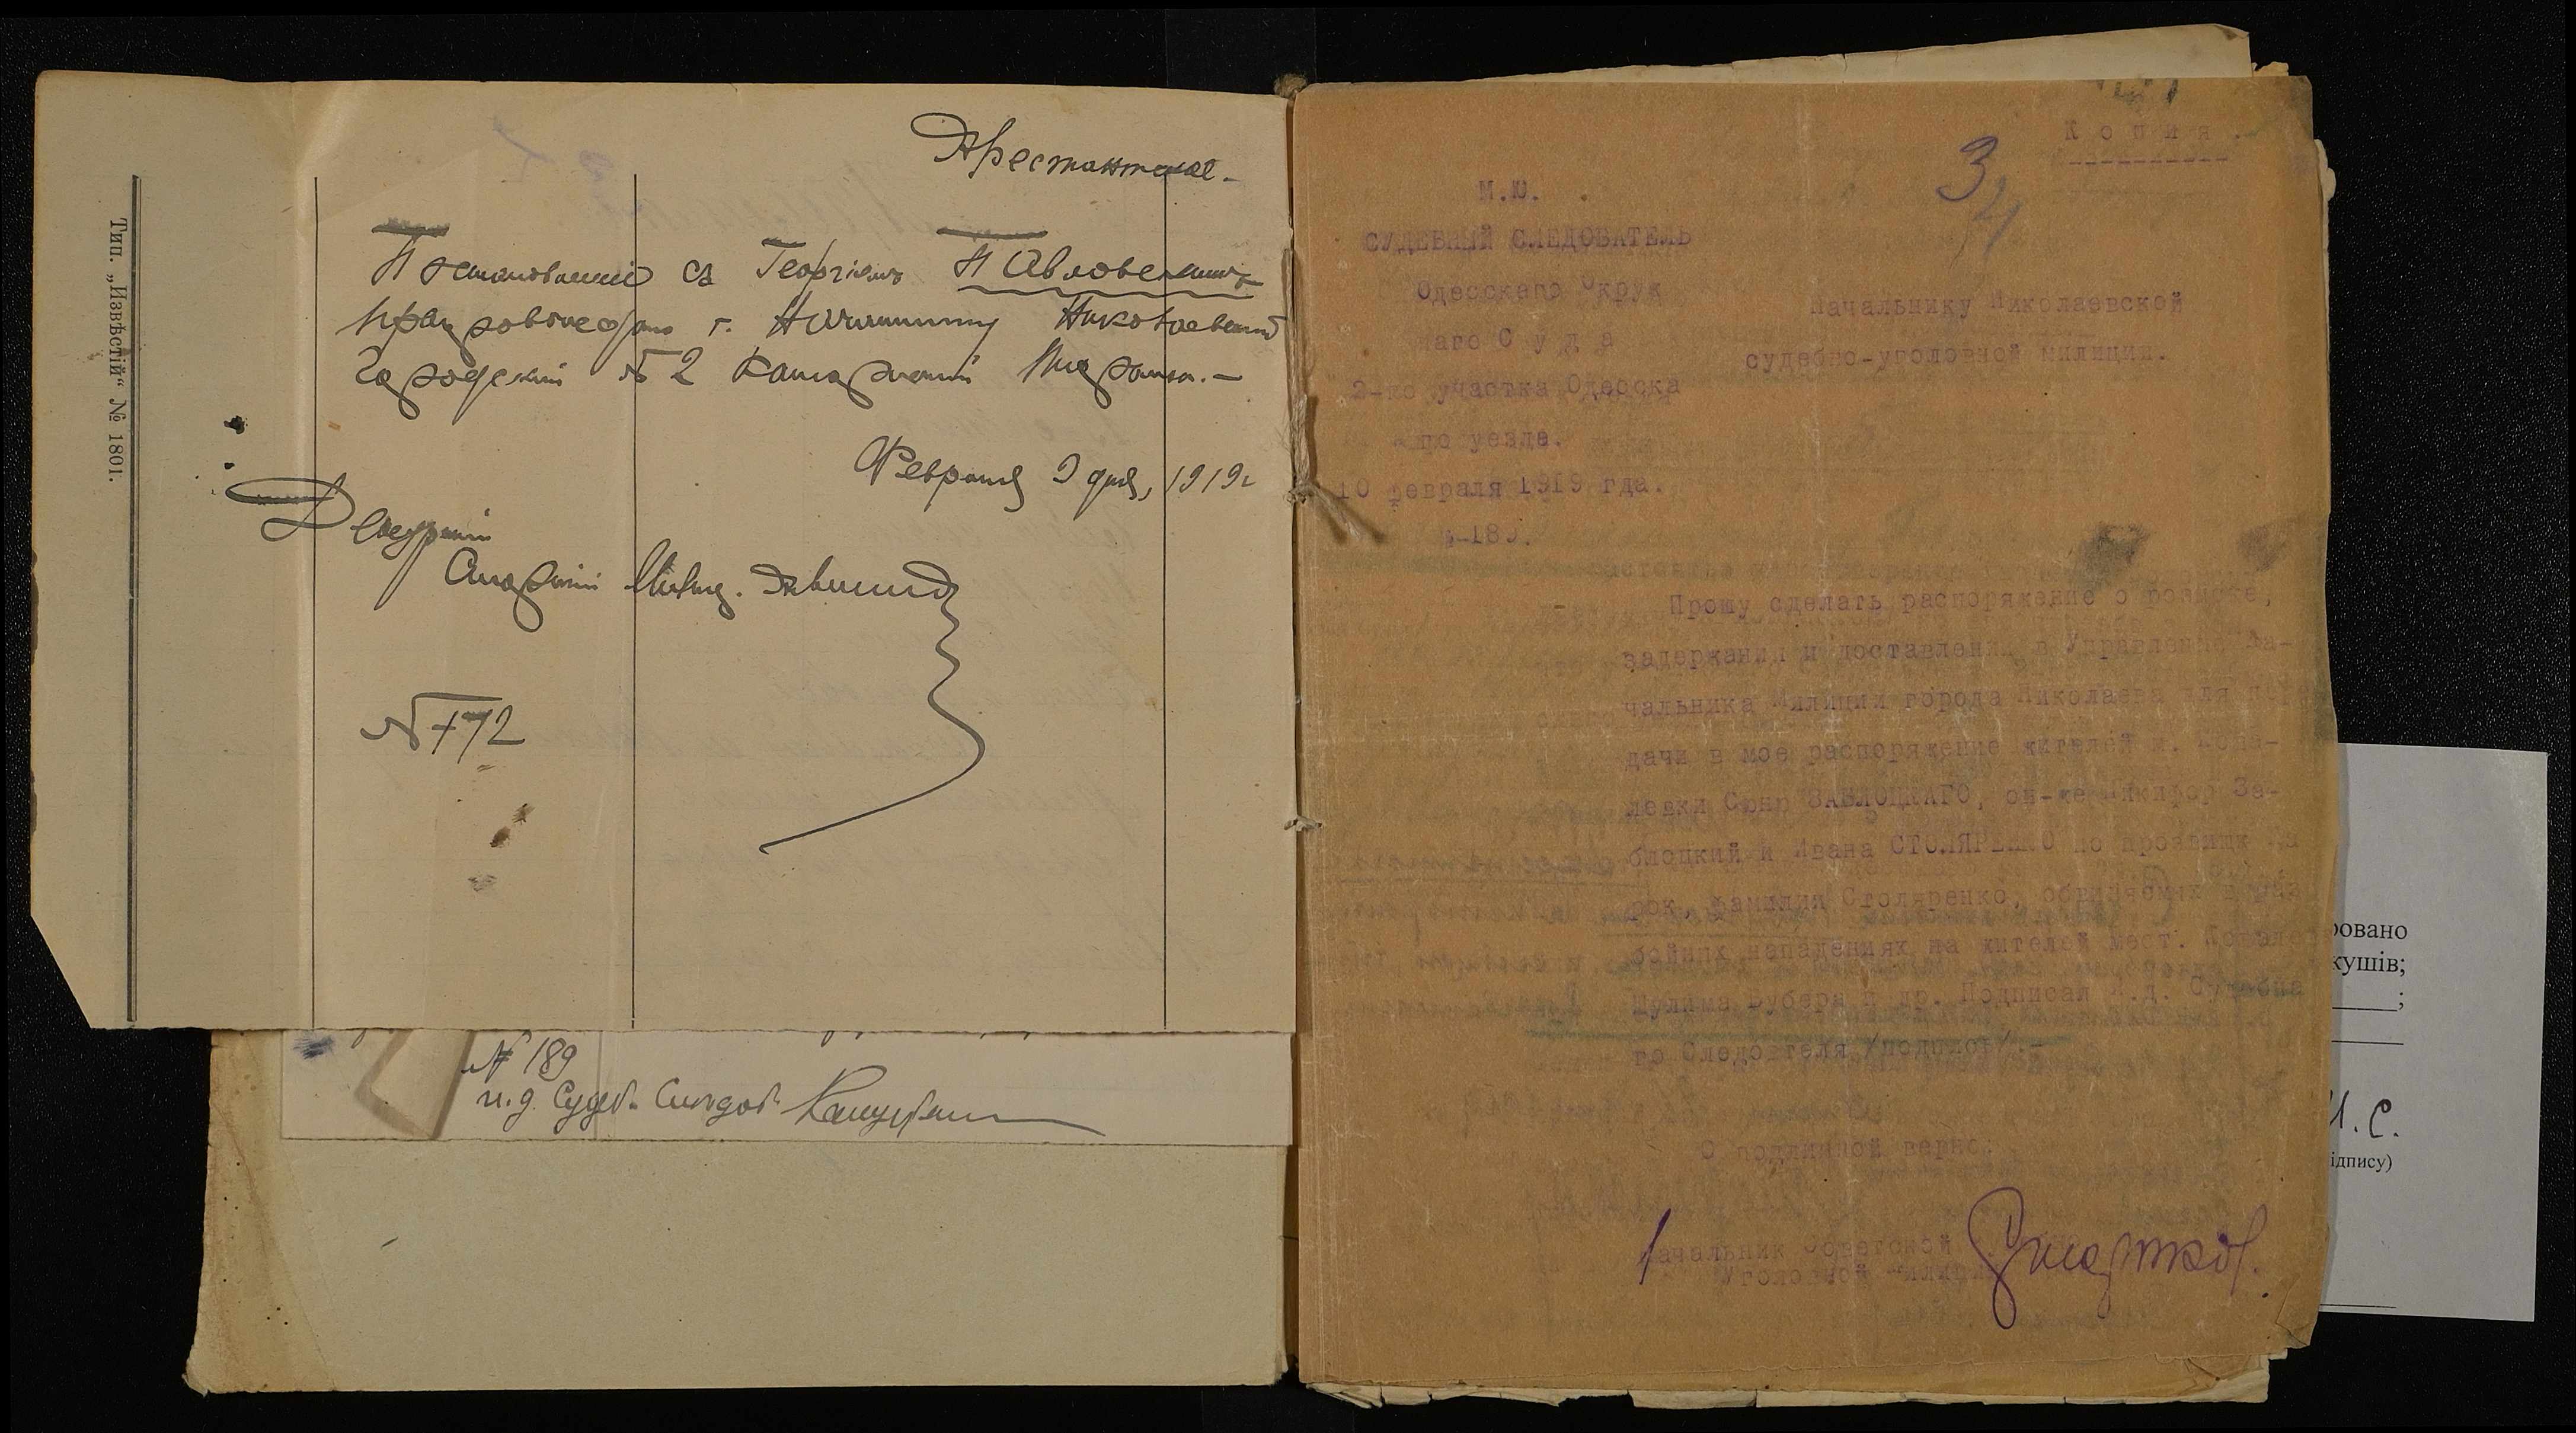 Тип. „Извѣстій“ № 1801.
Арестантское.
Постановленіе съ Георгіемъ Павловскимъ
препровождаю г. Начальнику Николаевской
Городской № 2 каторжной тюрьмы.—
Февраля 9 дня, 1919г
Дежурный
Старшій Милиц.
№ 172
№ 189
и. д. Судеб. Следов.
Копия.
3
М.Ю.
СУДЕБНЫЙ СЛЕДОВАТЕЛЬ
Одесскаго Окруж
наго Суда
2-го участка Одесска
го уезда.
10 февраля 1919 гда.
Начальнику Николаевской
судебно-уголовной милиции.
Прошу сделать распоряжение о розыске,
задержании и доставлении в Управление На-
чальника Милиции города Николаева для пе
дачи в мое распоряжение жителей м. Кова-
левки ЗАБЛОЦКАГО, он-же Никифор За-
блоцкий и Ивана СТОЛЯРЕНКО по прозвищу
рок, фамилия Столяренко, обвиняемых в раз
бойных нападениях на жителей мест. Ковале
Шулима Бубера и др. Подписал И.д. Судебна
го Следователя /подпись/.-
С подлинной верно.
Начальник Советской
Уголовной Милиции
ровано
кушів;
;
И.С.
ідпису)